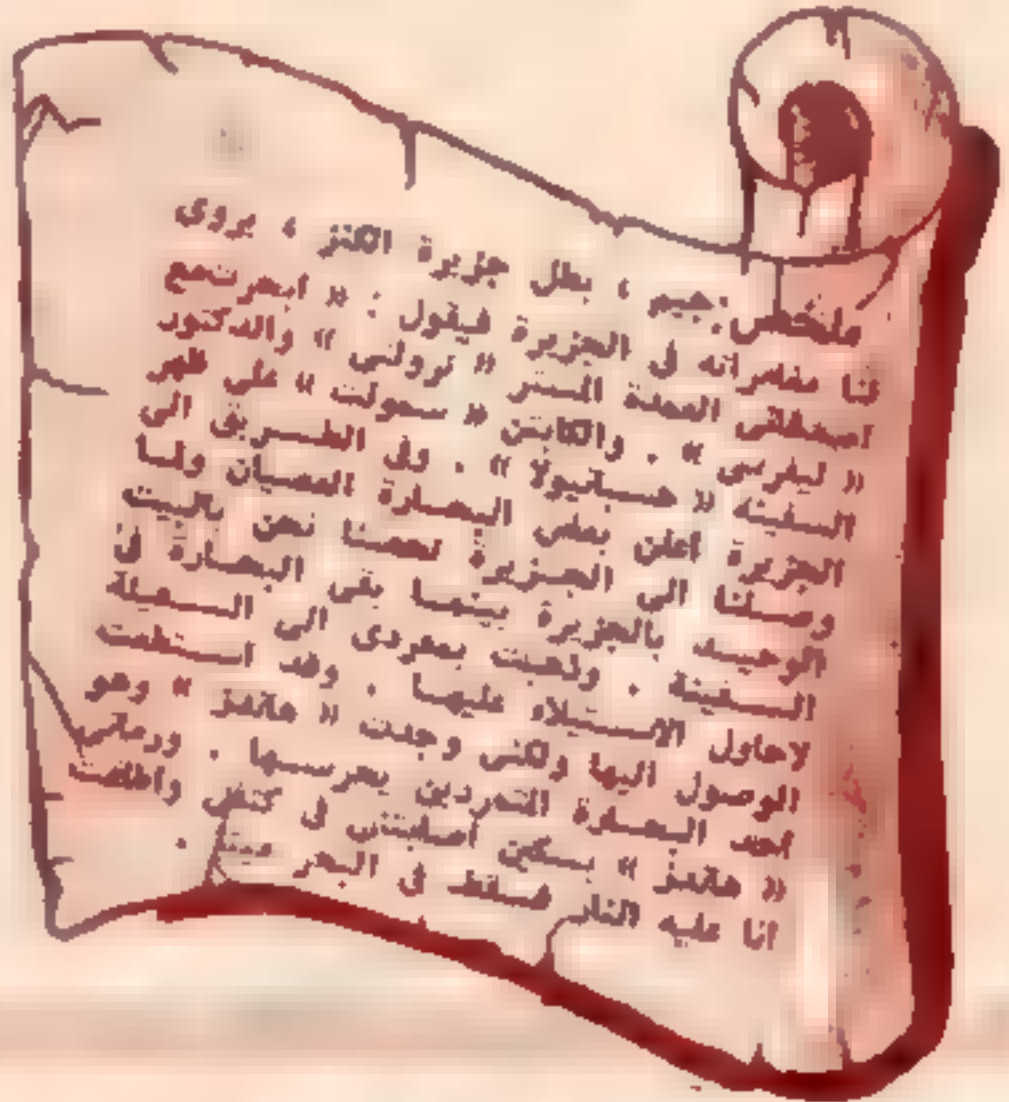 ملخص : جيم ، بطل جزيرة الكنز ، يروى
لنا مغامراته فى الجزيرة فيقول : « ابحرت مع
اصدقائى السادة المستر « ترولنى » والدكتور
« ليفرسى » . والكابتن « سمولت » على ظهر
السفينة « هسبانيولا » . وفى الطريق الى
الجزيرة اعلن بعض البحارة العصيان ولما
وصلنا الى الجزيرة تحصنا نحن بالبيت
الوحيد بالجزيرة بينما بقى البحارة فى
السفينة . وذهبت بمفردى الى السفينة
لاحاول الاستيلاء عليها . وقد استطعت
الوصول اليها ولكنى وجدت « هاندز » وهو
احد البحارة المتمردين يحرسها . ورمانى
« هاندز » بسكين أصابتنى فى كتفى واطلقت
انا عليه النار فسقط فى البحر ميتا .